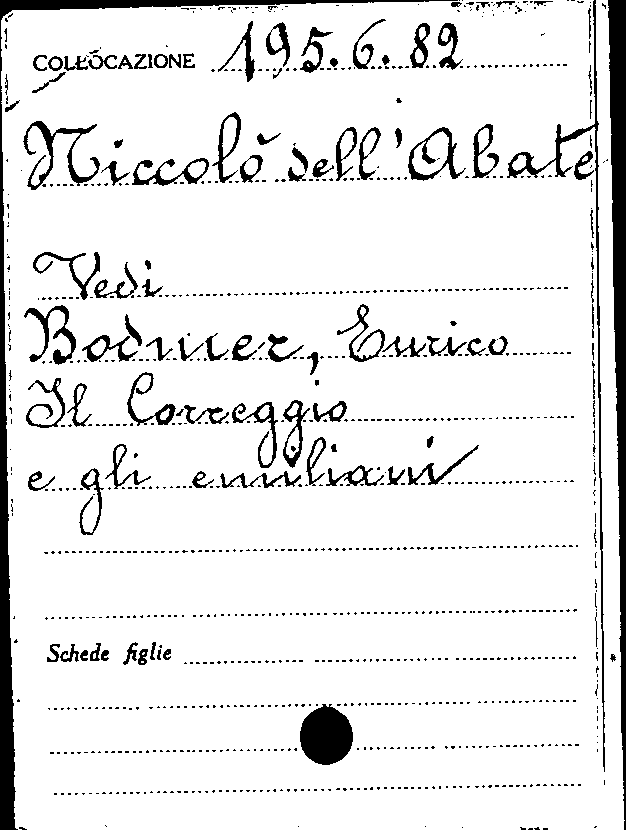 COLLOCAZIONE 195.6.82
Niccolò dell'Abate
Vedi
Bodmer, Enrico
Il Correggio
e gli emiliani
Schede figlie